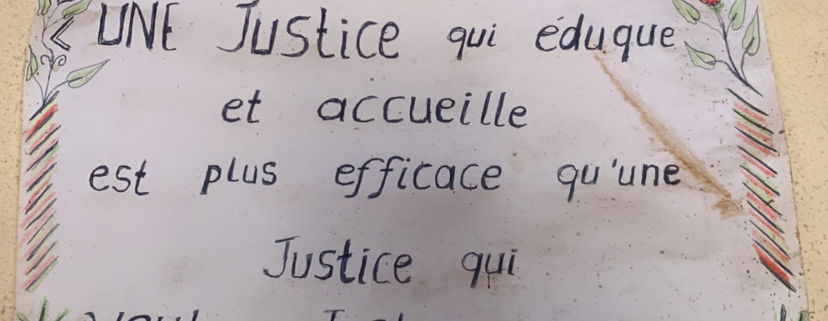 « UNE Justice qui éduque
et accueille
est plus efficace qu'une
Justice qui